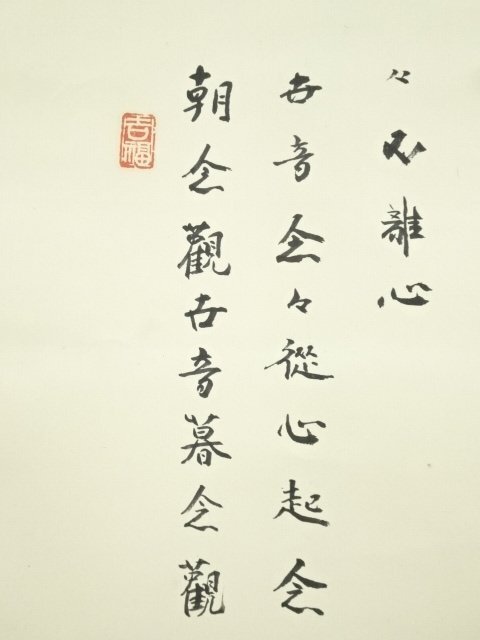 朝念觀世音暮念觀
世音念々從心起念
々不離心